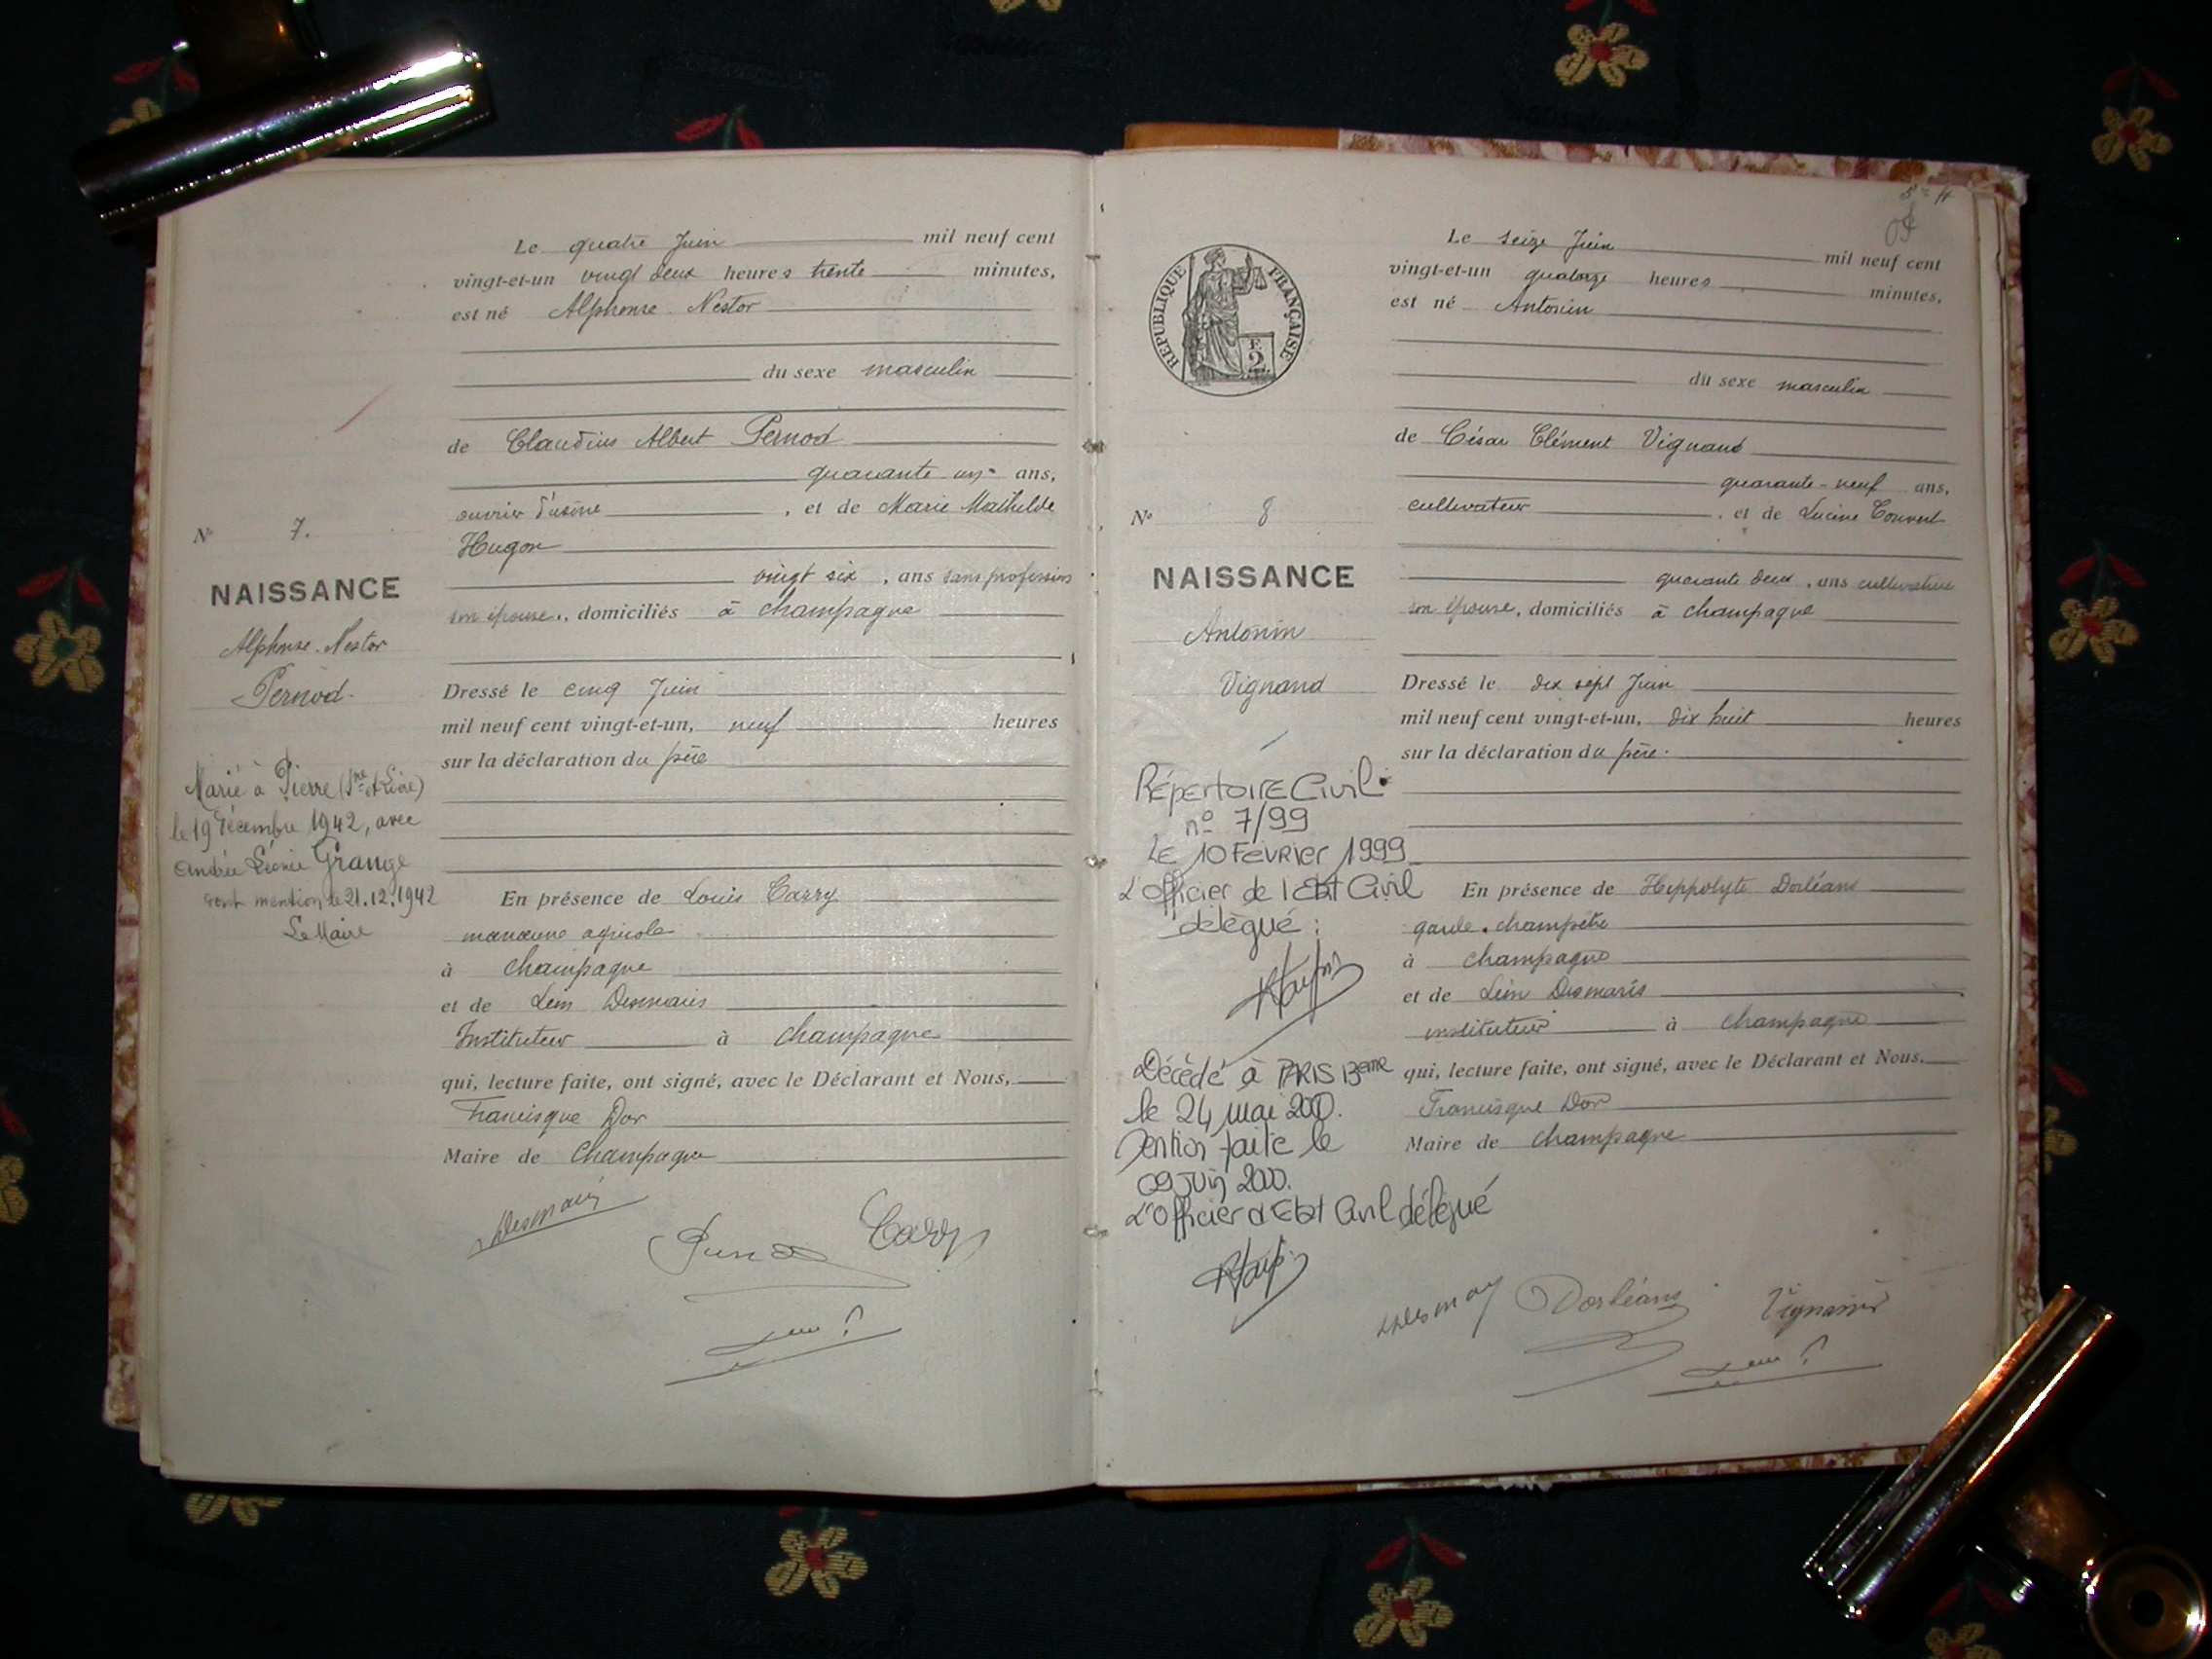 Le quatre Juin mil neuf cent
vingt-et-un vingt deux heures trente minutes,
est né Alphonse Nestor
du sexe masculin
de Claudius Albert Pernod
quarante un ans,
ouvrier d'usine, et de Marie Mathilde
Hugon
vingt six, ans sans profession
son épouse, domiciliés à Champagne
Dressé le cinq Juin
mil neuf cent vingt-et-un, neuf heures
sur la déclaration du père
En présence de Louis Carry
manœuvre agricole
à Champagne
et de Léon Desmaris
Instituteur à Champagne
qui, lecture faite, ont signé, avec le Déclarant et Nous,
Francisque Dor
Maire de Champagne
N° 7.
NAISSANCE
Alphonse Nestor
Pernod
Marié à Pierre (Sne et Loire)
le 19 Décembre 1942, avec
Andrée Léonie Grange
dont mention le 21.12.1942
Le Maire
Desmaris
Carry
RÉPUBLIQUE FRANÇAISE
F. 2
Le seize Juin mil neuf cent
vingt-et-un quatorze heures minutes,
est né Antonin
du sexe masculin
de César Clément Vignand
quarante-neuf ans,
cultivateur, et de Lucine Convert
quarante deux, ans
son épouse, domiciliés à Champagne
Dressé le dix sept Juin
mil neuf cent vingt-et-un, dix huit heures
sur la déclaration du père.
En présence de Hippolyte Dorléans
garde champêtre
à Champagne
et de Léon Desmaris
instituteur à Champagne
qui, lecture faite, ont signé, avec le Déclarant et Nous.
Francisque Dor
Maire de Champagne
N° 8
NAISSANCE
Antonin
Vignand
Répertoire Civil
n° 7/99
LE 10 Février 1999
L'Officier de l'Etat Civil
délégué :
Décédé à PARIS 13eme
le 24 mai 2000.
Mention faite le
09 Juin 2000.
L'Officier d'Etat Civil délégué
Dorléans
Vignand